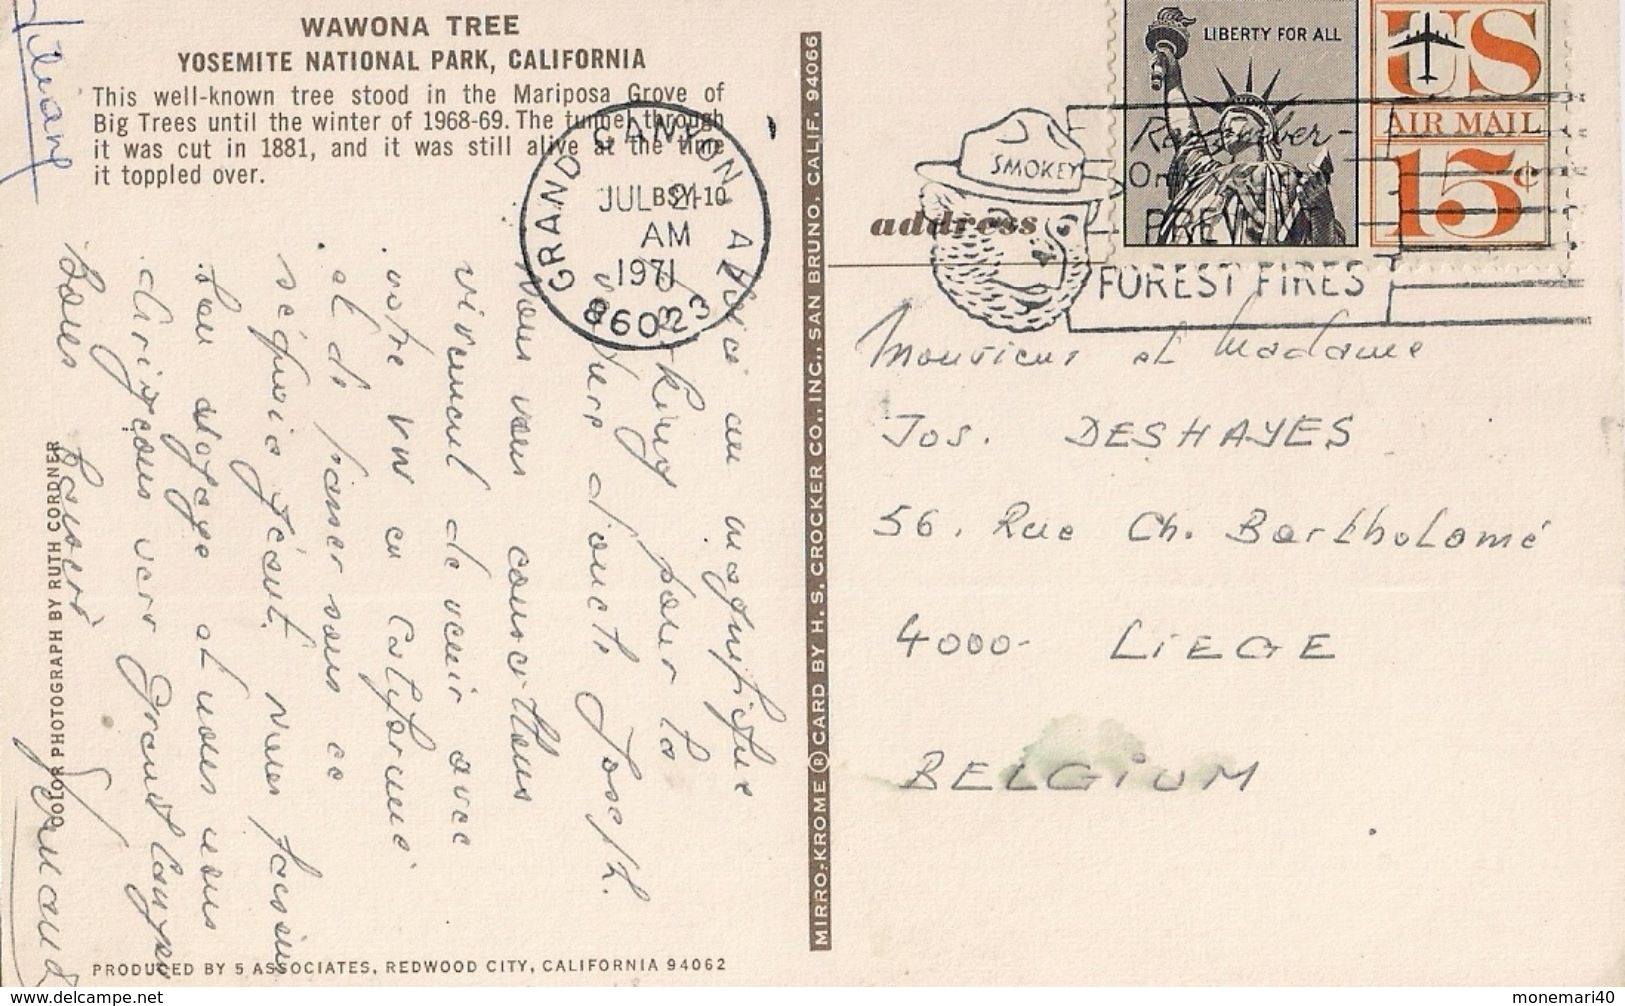 WAWONA TREE
YOSEMITE NATIONAL PARK, CALIFORNIA
This well-known tree stood in the Mariposa Grove of
Big Trees until the winter of 1968-69. The tunnel through
it was cut in 1881, and it was still alive at the time
it toppled over.
BSY-10
GRAND CANYON, A
JUL 21
AM
1971
86023
Voici un magnifique
parking pour la
voiture d'oncle Joseph.
Nous vous conseillons
vivement de venir avec
votre VW en Californie
et de passer sous ce
séquoia géant. Nous faisons
bon voyage et nous nous
dirigeons vers Grand Canyon
Bons baisers
COLOR PHOTOGRAPH BY RUTH CORDNER
PRODUCED BY 5 ASSOCIATES, REDWOOD CITY, CALIFORNIA 94062
MIRRO-KROME ® CARD BY H. S. CROCKER CO., INC., SAN BRUNO, CALIF. 94066
LIBERTY FOR ALL
US
AIR MAIL
15¢
SMOKEY
Remember-
Only you
PREVENT
FOREST FIRES
address
Monsieur et Madame
Jos. DESHAYES
56. Rue Ch. Bartholomé
4000- LIEGE
BELGIUM
www.delcampe.net
monemari40